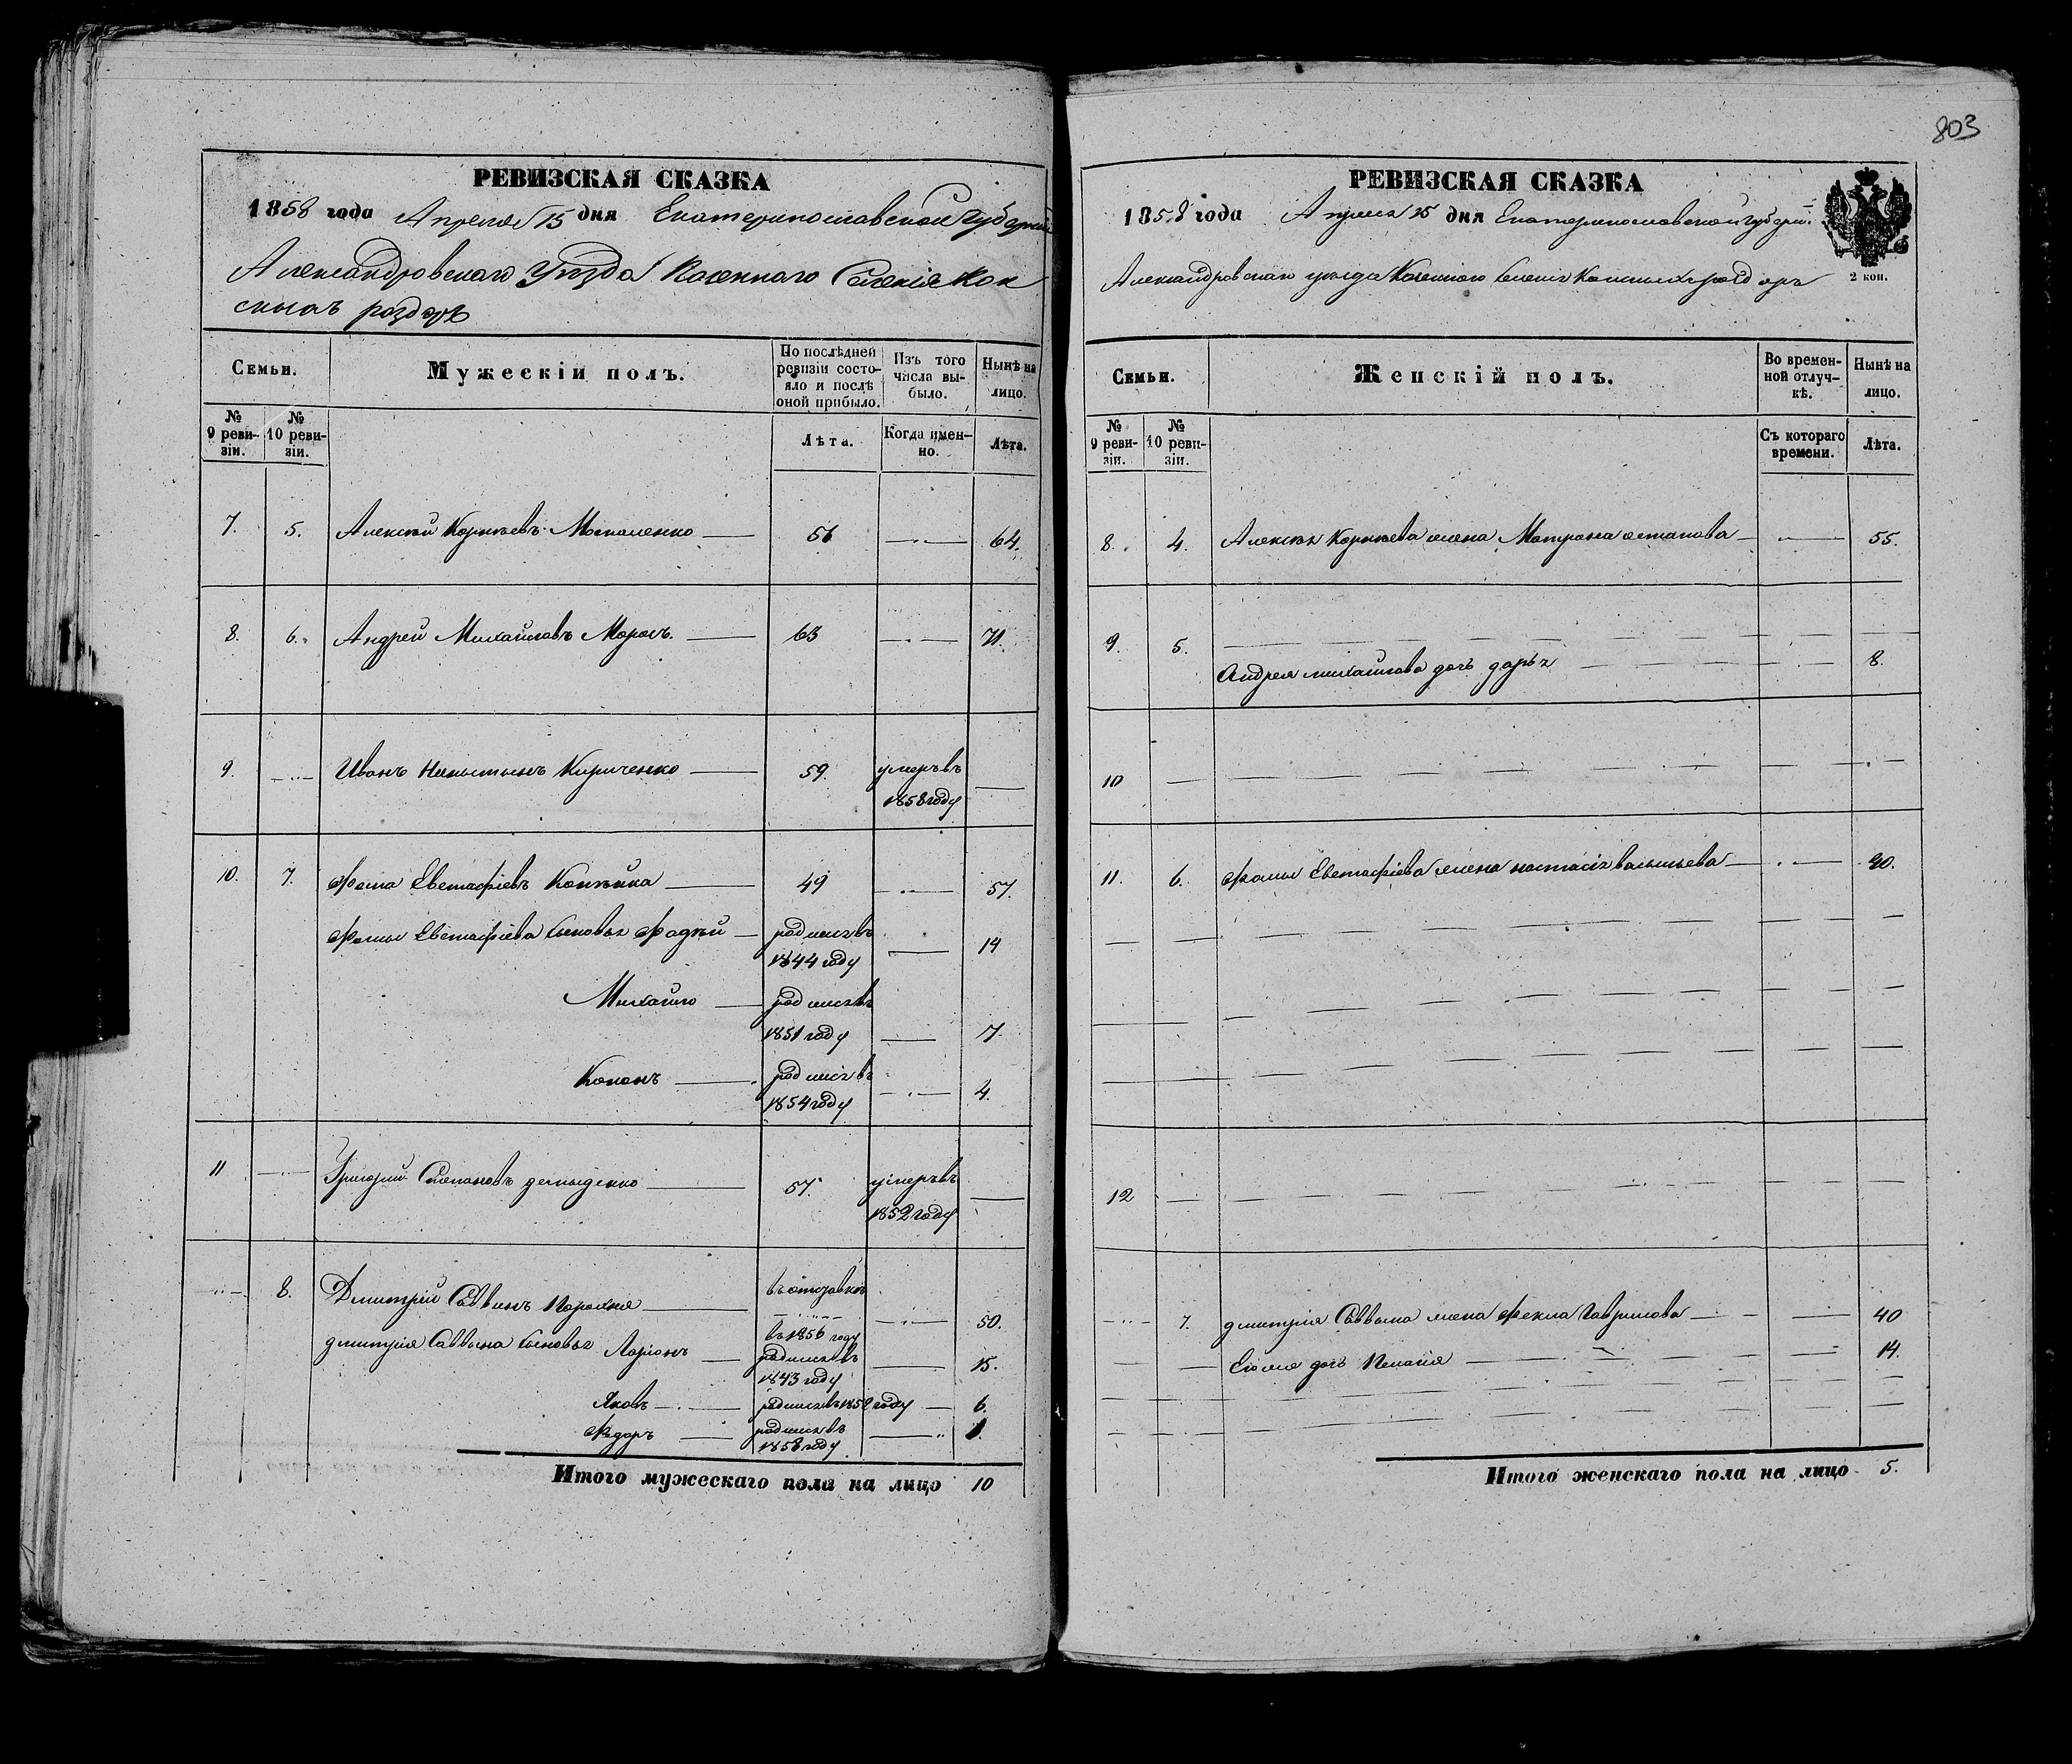 803
РЕВИЗСКАЯ СКАЗКА
1858 года Апреля 15 дня Екатеринославской губернии
Александровскаго уѣзда Казеннаго Селенія Кон
скихъ раздоръ
Семьи.
Мужескій полъ.
По послѣдней ревизіи состояло и послѣ оной прибыло.
Изъ того числа выбыло.
Нынѣ на лицо.
№ 9 ревизіи.
№ 10 ревизіи.
Лѣта.
Когда именно.
Лѣта.
7. 5. Алексѣй Корнѣевъ Москаленко 56 64.
8. 6. Андрей Михайловъ Морозъ. 63 71.
9. Иванъ Кириченко 59. умеръ въ
1858 году
10. 7. Фома Евстафіевъ Копѣйка 49 57.
Фомы Евстафіева сыновья Фадѣй родился въ
1844 году 14
Михайло родился въ
1851 году 7.
Кононъ родился въ
1854 году 4.
11 Григорій Степановъ 57. умеръ въ
1852 году
8. Дмитрій Саввинъ 50.
въ 1856 году
Дмитрія Саввина сыновья Ларіонъ родился въ
1843 году 15.
Яковъ родился въ 1852 году 6.
Федоръ родился въ
1858 году
Итого мужескаго пола на лицо 10
РЕВИЗСКАЯ СКАЗКА
1858 года Апреля 15 дня Екатеринославской губерніи
Александровскаго уѣзда Казеннаго Селенія Конскихъ раздоръ
2 коп.
Семьи.
Женскій полъ.
Во временной отлучкѣ.
Нынѣ на лицо.
№ 9 ревизіи.
№ 10 ревизіи.
Съ котораго времени.
Лѣта.
8. 4. Алексѣя Корнѣева жена Матрона Остапова 55.
9. 5.
Андрея Михайлова дочь Дарья 8.
10
11. 6. Фомы Евстафіева жена Настасія Васильева
12
7. Дмитрія Саввина жена Фекла Гаврилова 40
Его дочь Пелагія 14.
Итого женскаго пола на лицо 5.